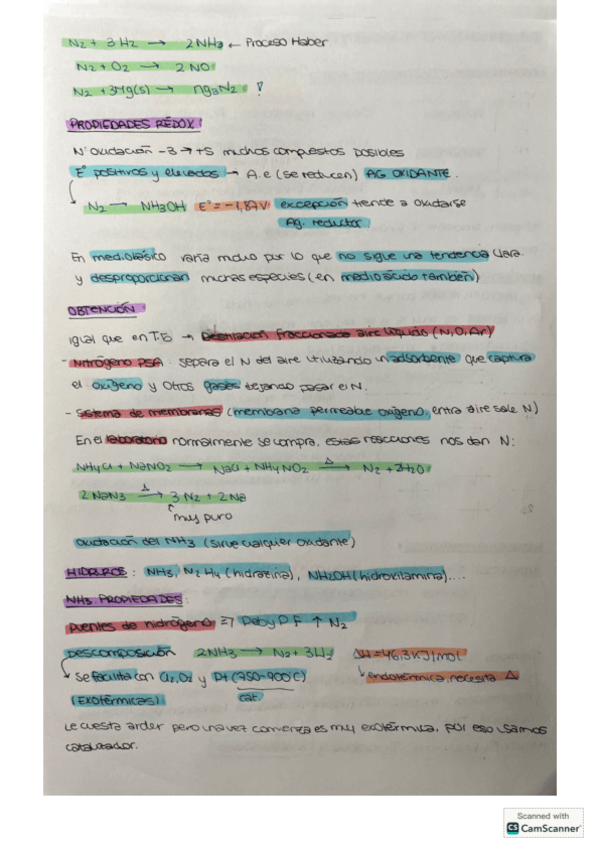 N₂ + 3H₂ → 2NH₃ ← Proceso Haber
N₂ + O₂ → 2NO
N₂ + 3Mg(s) → Mg₃N₂ !
PROPIEDADES REDOX:
Nº oxidación -3 → +5 muchos compuestos posibles
Eº positivos y elevados → A.e (se reducen) AG OXIDANTE.
N₂ → NH₃OH Eº = -1,87V excepción tiende a oxidarse
Ag. reductor
En medio básico varía mucho por lo que no sigue una tendencia clara
y desproporcionan muchas especies (en medio ácido también)
OBTENCIÓN:
Igual que en T.5 → Destilación fraccionada aire líquido (N, O, Ar)
- Nitrógeno PSA: separa el N del aire utilizando un adsorbente que captura
el oxígeno y otros gases dejando pasar el N.
- Sistema de membranas (membrana permeable oxígeno, entra aire sale N)
En el laboratorio normalmente se compra, estas reacciones nos dan N:
NH₄Cl + NaNO₂ → NaCl + NH₄NO₂ →Δ N₂ + 2H₂O
2NaN₃ →Δ 3N₂ + 2Na
muy puro
oxidación del NH₃ (sirve cualquier oxidante)
HIDRUROS: NH₃, N₂H₄ (hidrazina), NH₂OH (hidroxilamina)....
NH₃ PROPIEDADES:
Puentes de hidrógeno ↑ N₂
Descomposición 2NH₃ → N₂ + 3H₂ ΔH = 46,3 KJ/mol
Se facilita con Cl₂, O₂ y Pt (750-900ºC) endotérmica, necesita Δ
(Exotérmicas) cat.
Le cuesta arder pero una vez comienza es muy exotérmica, por eso usamos
catalizador.
Scanned with
CS CamScanner